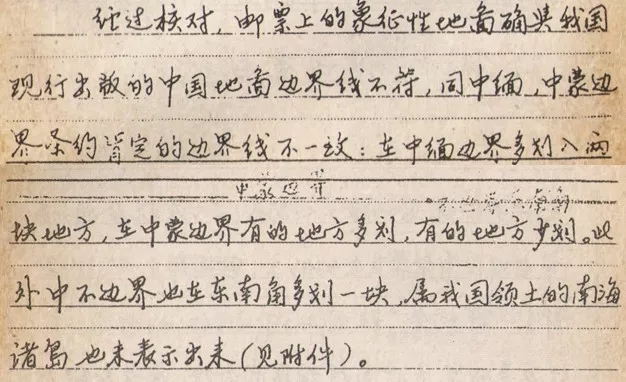 经过核对，邮票上的象征性地图确与我国
现行出版的中国地图边界线不符，同中缅，中蒙边
界条约肯定的边界线不一致：在中缅边界多划入两
中蒙边界
块地方，在中蒙边界有的地方多划，有的地方少划。此
外中不边界也在东南角多划一块，属我国领土的南海
诸岛也未表示出来（见附件）。